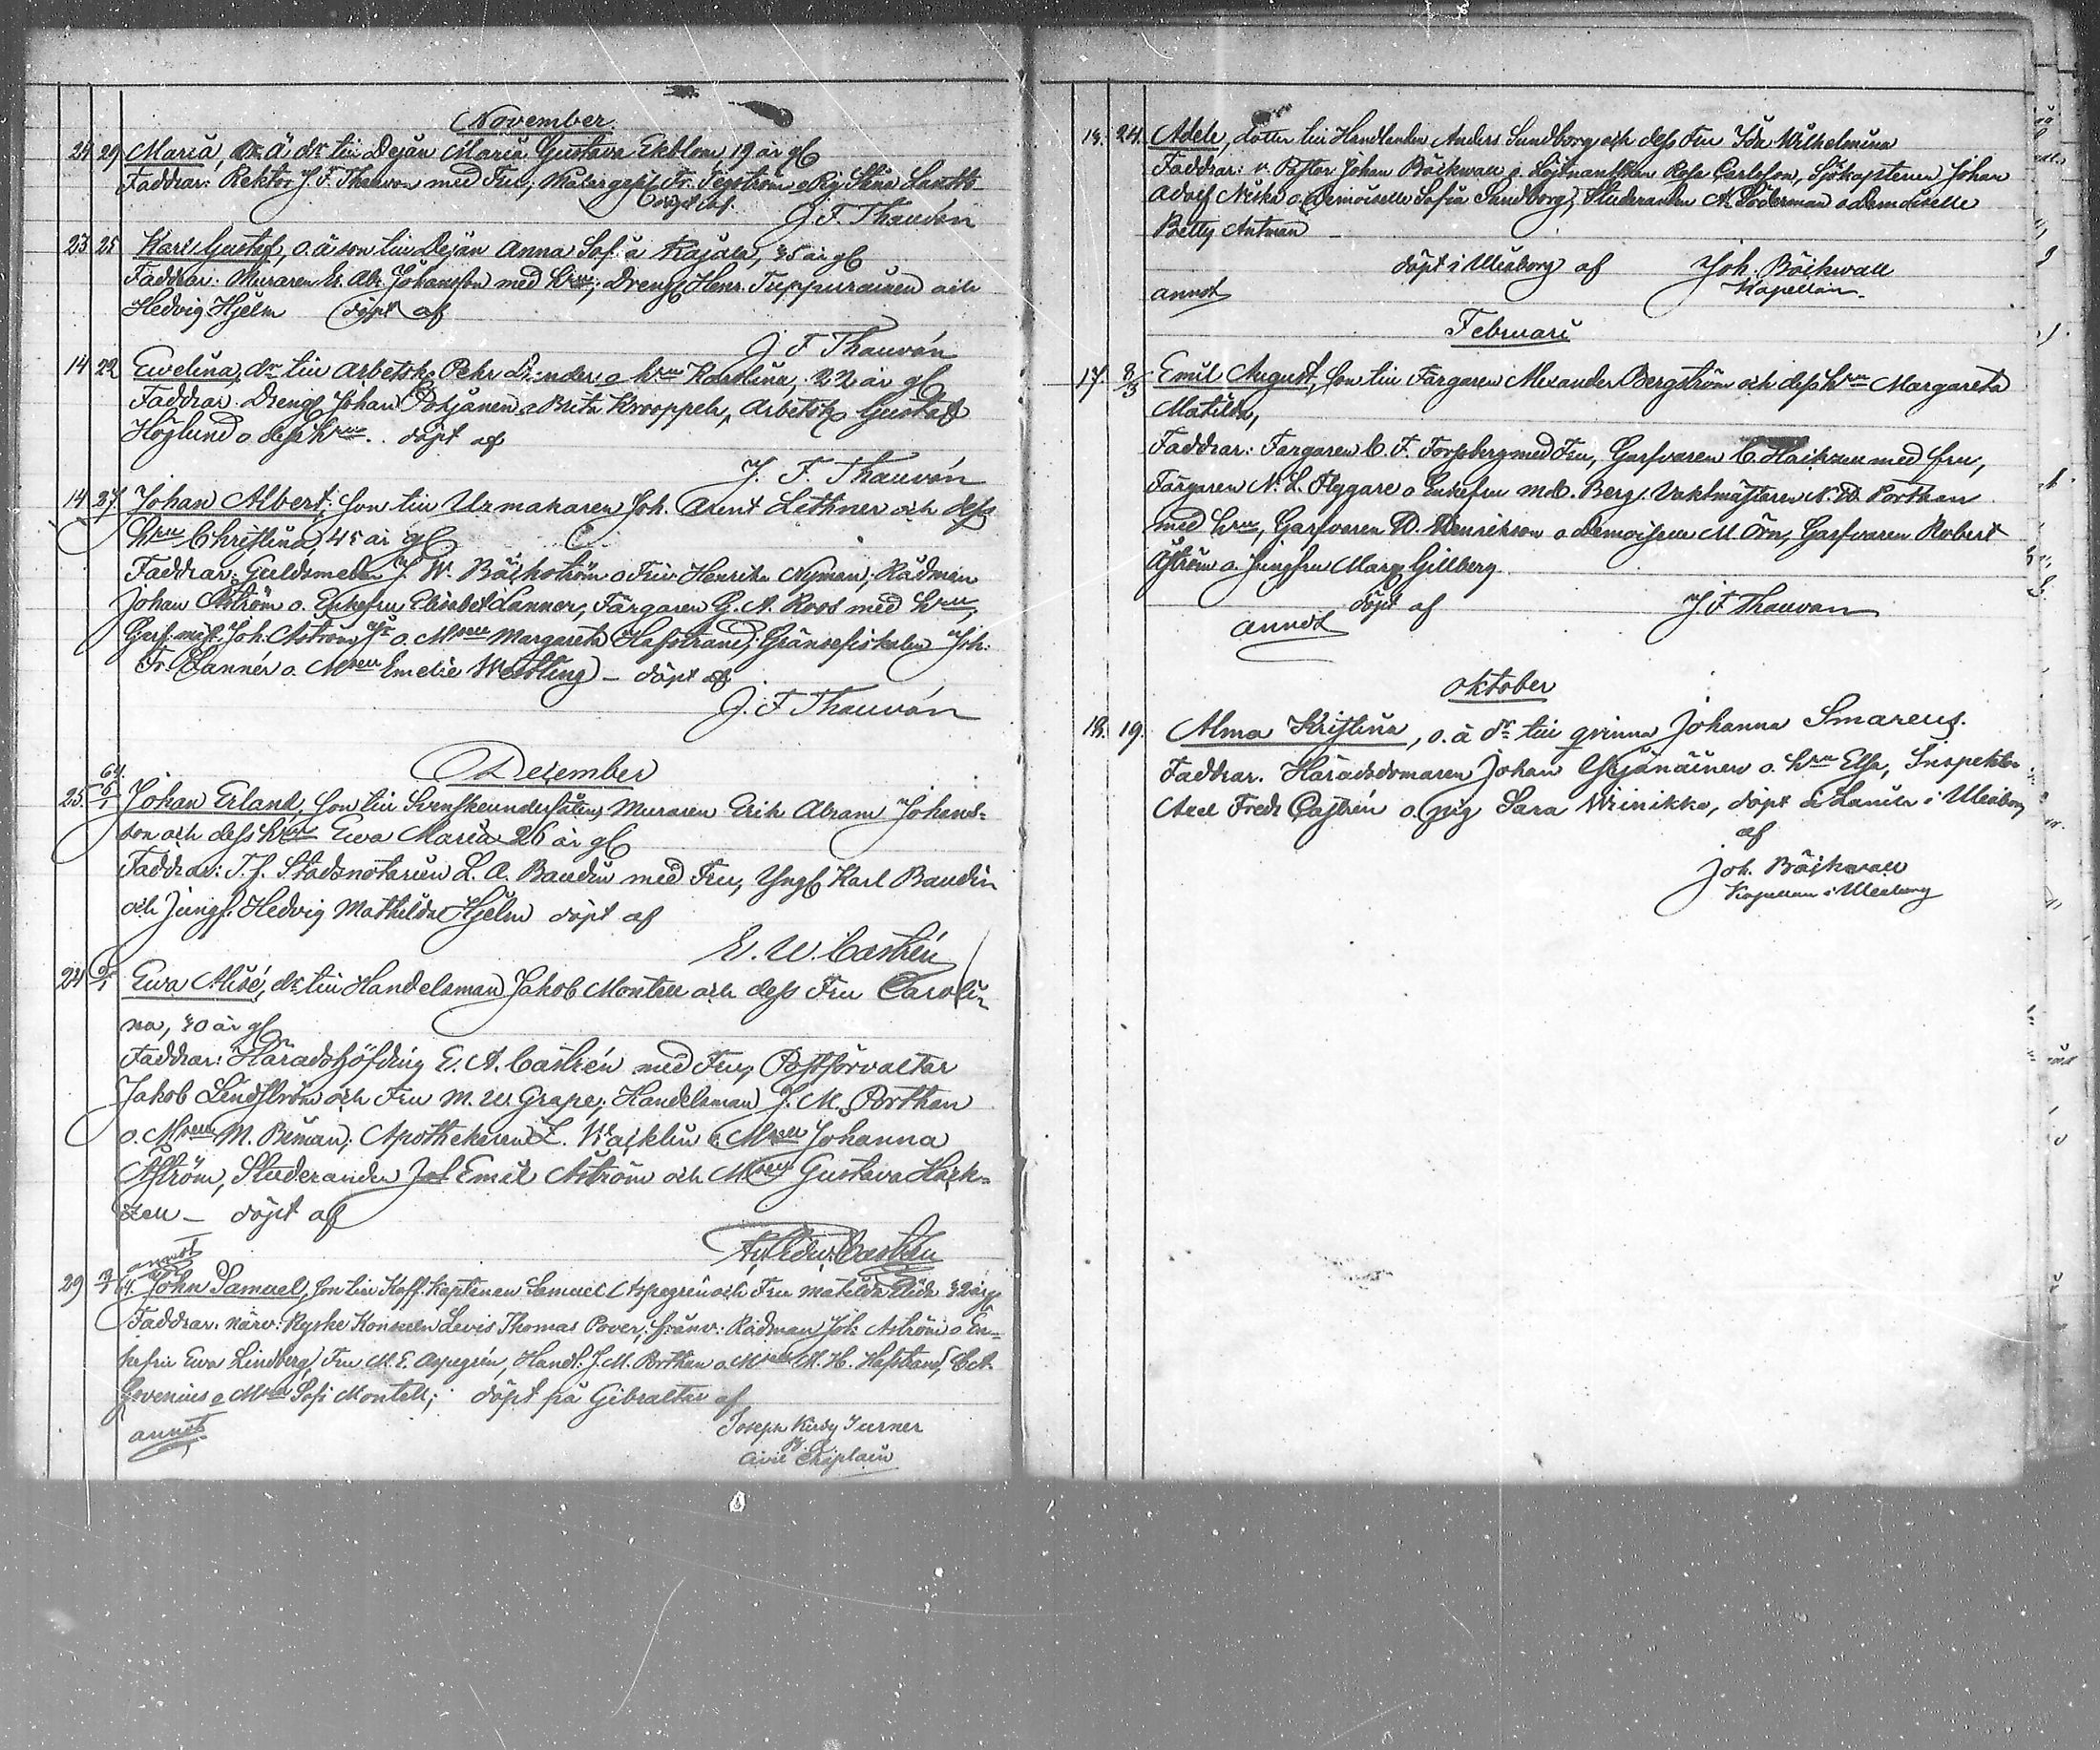 November
24 29 Maria, o. ä. dr till Dejan Maria Gustava Ekblom, 19 år gl
Faddrar: Rektor J. F. Thauvón med Fru, Målargesl. Fr. Tegström o Pig. Stina
döpt af J. F. Thauvón
23 25 Karl Gustaf, o. ä son till Dejan Anna Sof:a Kajala, 35 år gl
Faddrar: Muraren Er. Abr. Johansson med hru; Dreng Henr. Tuppurainen och
Hedvig Hjelm döpt af
J. F. Thauvón
14 22 Ewelina, dr till Arbetsk. Pehr o hru Karolina, 22 år gl
Faddrar. Dreng Johan Pohjanen o Brita Krooppela, Arbetsk Gustaf
Höglund o dess hru.. döpt af
J. F. Thauvón
14 27 Johan Albert, son till Urmakaren Joh. Arent Lethner och dess
hru Christina, 45 år gl
Faddrar: Guldsmeden J. W. Bäckström o Fru Henrika Nyman; Rådman
Johan Åström o. Enkefru Elisabet Lanner, Färgaren G. A. Roos med hru,
Garf. mäst. Joh. Åström Jr o. Msell Margareta Hafstrand; Gränsefiskalen Joh.
Fr. Lannér o. Msell Emelie Westling – döpt af
J. F. Thauvón
December
64.
25. 6/1 Johan Erland, son till Svenskeundersåten, Muraren Erik Abram Johans-
son och dess hru Ewa Maria 26 år gl
Faddrar: T. f. Stadsnotarien L. A. Baudin med Fru, Yngl Karl Baudin
och Jungf. Hedvig Mathilda Hjelm döpt af
E. W. Castrén
24 Ewa Alisé, dr till Handelsman Jakob Montell och dess Fru Caroli-
na, 30 år gl
Faddrar: Häradshöfding E. A. Castrén med Fru, Postförvaltar
Jakob Lindström och Fru M. W. Grape; Handelsman J. M. Porthan
o. Msell M. Beman; Apothekaren L. Wacklin o. Msell Johanna
Åström, Studeranden Jos Emil Åström och Msell Gustava Hack-
zell – döpt af
Castrén
annot
29 64. John Samuel, son till Koff. Kaptenen Samuel Aspegrén och Fru Matilda 32 år gl
Faddrar. närv: Ryske Konsulen Levis Thomas Power; frånv: Rådman Joh. Åström o En-
kefru Ewa Lindberg, Fru M. E. Aspegrén, Handl. J. M. Porthan o. Msell M. H. Hafstrand,
o Msell Sofi Montell; döpt på Gibraltar af
annot Joseph Kirby Turner
Civil Chaplain
18. 24. Adele, dotter till Handlanden Anders Sundborg och dess Fru Ida Wilhelmina
Faddrar: v. Pastor Johan Bäckwall o Löjtnantskan Rosa Carlsson, Sjökaptenen Johan
Adolf Niska o Demoiselle Sofia Sundborg, Studeranden A. Söderman o demoiselle
Betty Antman –
döpt i Uleåborg af Joh. Bäckwall
annot Kapellan.
Februari
17. 8/3 Emil August, son till Färgaren Alexander Bergström och dess hru Margareta
Matilda,
Faddrar: Färgaren C. F. Forssberg med Fru, Garfvaren C. Hackzell med fru,
Färgaren N. L. Flygare o Enkefru Berg, Vaktmästaren N. Porthan
med hru, Garfvaren Henrikson o demoisell M. Örn, Garfvaren Robert
Åström o. Jungfru Marg Gillberg
döpt af J. F. Thauvón
annot
Oktober
18. 19. Alma Kristina, o. ä dr till qvinna Johanna Smareus.
Faddrar. Häradsdomaren Johan o. hru Elsa, Inspektor
Axel Fredr Castrén o. pig Sara Wiinikka, döpt å i Uleåborg
af
Joh. Bäckwall
Kapellan i Uleåborg